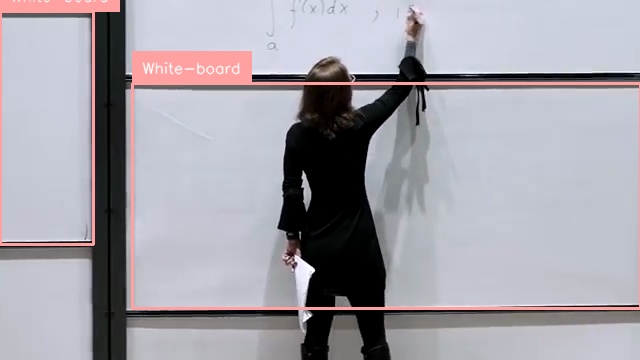 White-board
∫ f'(x)dx ,
a
White-board